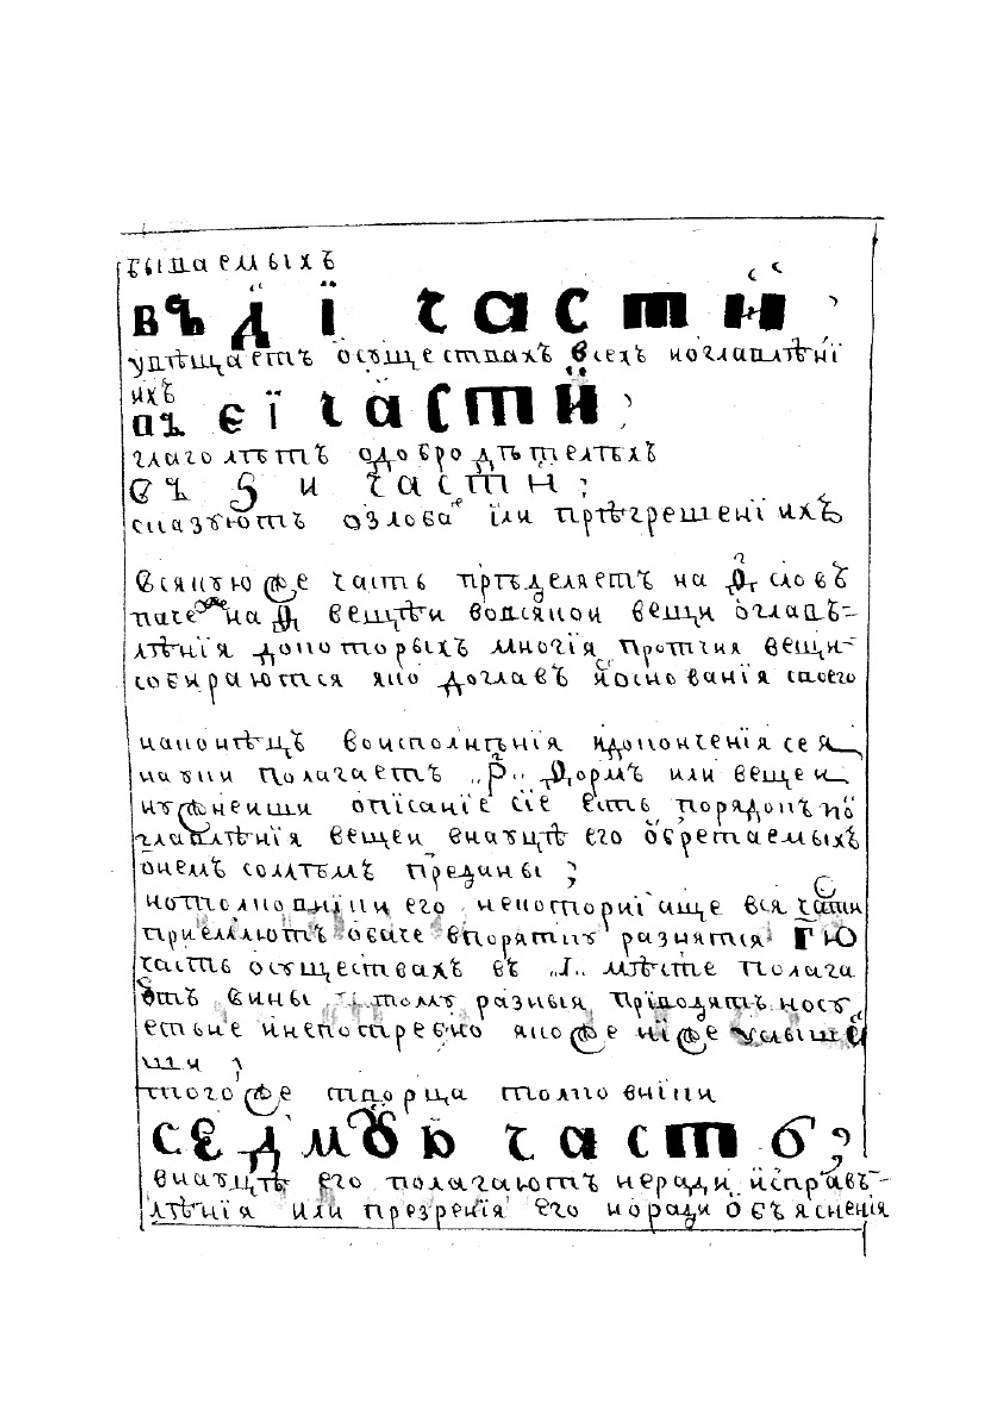 бываемыхъ
въ д҃ ї части
увѣщаетъ осꙋществахъ всехъ ноглавлѣнї
ихъ
въ є҃ ї части ;
глаголѣтъ одобродѣтелѣхъ
въ ѕ и части ;
сказꙋютъ озлоба или прѣгрешенї ихъ
всякꙋю же часть прѣделяетъ на д҃ словъ
паче же на д҃ вещѣи вовсякои вещи оглавъ-
лѣнїя докоторыхъ многїя протчия вещи
собираются яко доглавъ и основанїя своего
наконѣцъ воисполнѣнїя идокончения сея
науки полагаетъ „р҃„ формъ или вещеи
нꙋжнеиши описание сїе есть порядокъ по
главлѣнїя вещеи внаꙋцѣ его обретаемыхъ
онемъ самѣмъ преданы ;
нотолковники его некоториї аще вся части
приемлютъ обаче впорятку разнятся г҃ю
часть осꙋществахъ въ „1„ мѣсте полага
ютъ вины томꙋ разныя приводятъ носꙋ
етные инепотребно якоже ниже услыше
ши ;
тогоже творца толковники
седмꙋю часть ;
внаꙋцѣ его полагаютъ неради исправъ-
лѣнїя или презренїя его норади объясненїя